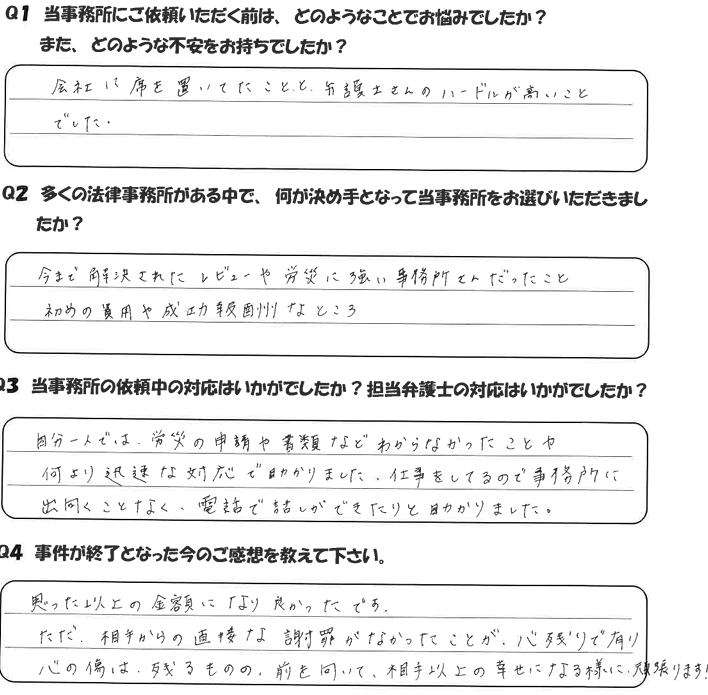 Q1 当事務所にご依頼いただく前は、どのようなことでお悩みでしたか？
また、どのような不安をお持ちでしたか？
会社に席を置いてたことと、弁護士さんのハードルが高いこと
でした.
Q2 多くの法律事務所がある中で、何が決め手となって当事務所をお選びいただきまし
たか？
今まで解決されたレビューや労災に強い事務所さんだったこと
初めの費用や成功報酬なところ
Q3 当事務所の依頼中の対応はいかがでしたか？担当弁護士の対応はいかがでしたか？
自分一人では、労災の申請や書類などわからなかったことや
何より迅速な対応で助かりました、仕事をしてるので事務所に
出向くことなく、電話で話しができたりと助かりました。
Q4 事件が終了となった今のご感想を教えて下さい。
思った以上の金額になり良かったです.
ただ、相手からの直接な謝罪がなかったことが、心残りで有り
心の傷は、残るものの、前を向いて、相手以上の幸せになる様に、頑張ります!